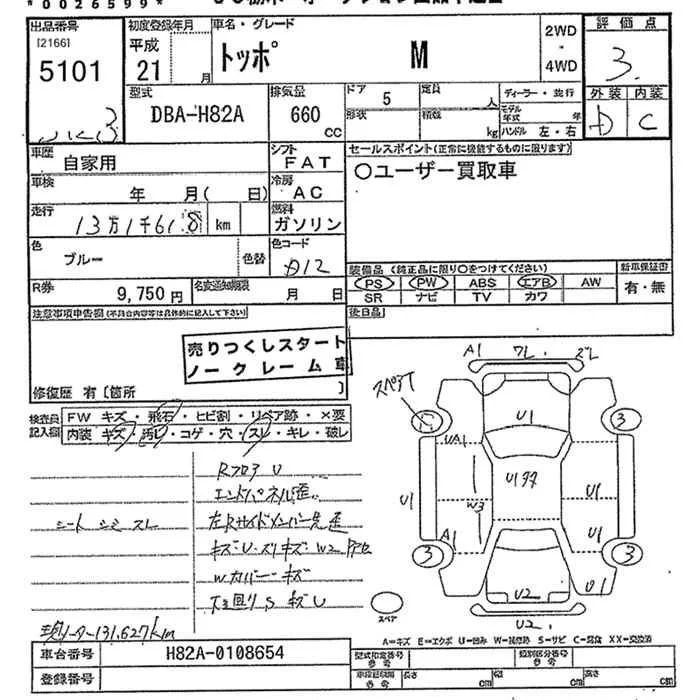 *0026599*
出品番号
[2166]
5101
初度登録年月
平成
21
月
車名・グレード
トッポ
M
2WD
・
4WD
評価点
3.
外装
内装
D
C
型式
DBA-H82A
排気量
660
CC
ドア
5
形状
定員
人
積載
kg
ディーラー・並行
モデル
年式
年
ハンドル 左・右
車歴
自家用
シフト
FAT
セールスポイント(正常に機能するものに限ります)
○ユーザー買取車
車検
年 月( 日)
冷房
AC
走行
13万1千61.8
km
燃料
ガソリン
色
ブルー
色替
色コード
D12
装備品 (純正品に限り○をつけてください)
新車保証書
PS
PW
ABS
エアB
AW
有・無
SR
ナビ
TV
カワ
R券
9,750円
名変通知期限
月 日
後日品
注意事項申告欄(不具合内容等は具体的に記入して下さい)
売りつくしスタート
ノークレーム車
修復歴 有〔箇所 〕
検査員
記入欄
FW キズ・飛石・ヒビ割・リペア跡・×要
内装 キズ・汚れ・コゲ・穴・スレ・キレ・破レ
Rフロア U
エンドパネル歪
シート シミ スレ
左Rサイドメンバー先歪
キズ・U・スリキズ・W2
Wカバー キズ
下廻り S キズ U
現メーター131,627km
A1
7L.
2L
スペアT
3
U1
UA1
U1
U1
W3
U1
A1
U1
3
3
U1
U2
U2.
スペア
A=キズ E=エクボ U=凹み W=補修跡 S=サビ C=腐食 XX=交換済
車台番号
H82A-0108654
型式指定番号
参考
類別区分番号
参考
登録番号
長さ
cm
幅
cm
高さ
cm